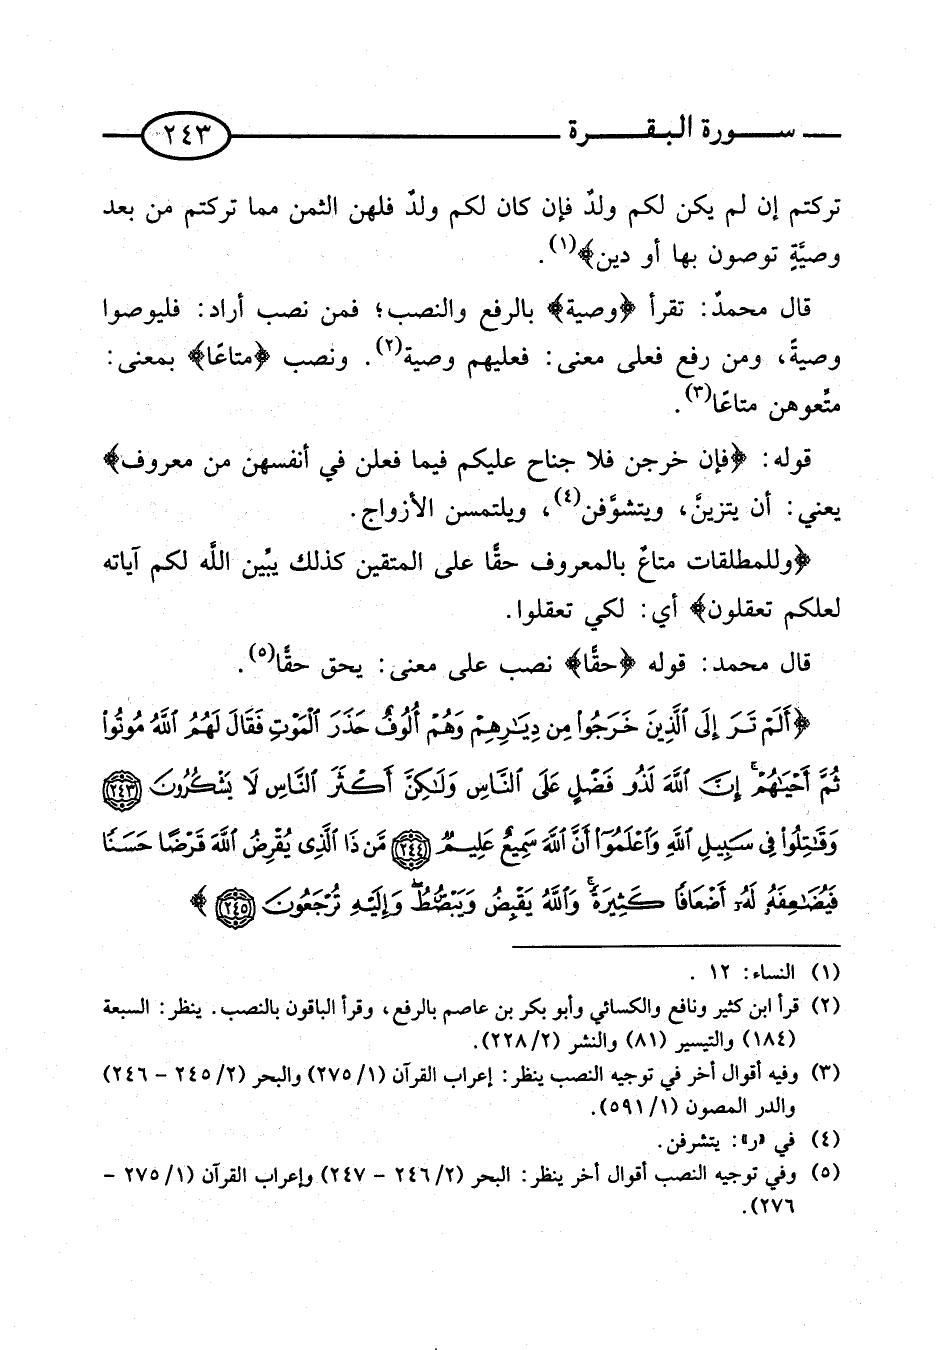 سورة البقرة ٢٤٣
تركتم إن لم يكن لكم ولدٌ فإن كان لكم ولدٌ فلهن الثمن مما تركتم من بعد
وصيَّةٍ توصون بها أو دين﴾(١).
قال محمدٌ: تقرأ ﴿وصية﴾ بالرفع والنصب؛ فمن نصب أراد: فليوصوا
وصيةً، ومن رفع فعلى معنى: فعليهم وصية(٢). ونصب ﴿متاعًا﴾ بمعنى:
متِّعوهن متاعًا(٣).
قوله: ﴿فإن خرجن فلا جناح عليكم فيما فعلن في أنفسهن من معروف﴾
يعني: أن يتزينَّ، ويتشوَّفن(٤)، ويلتمسن الأزواج.
﴿وللمطلقات متاعٌ بالمعروف حقًّا على المتقين كذلك يبِّين اللَّه لكم آياته
لعلكم تعقلون﴾ أي: لكي تعقلوا.
قال محمد: قوله ﴿حقًّا﴾ نصب على معنى: يحق حقًّا(٥).
﴿أَلَمْ تَرَ إِلَى ٱلَّذِينَ خَرَجُوا۟ مِن دِيَـٰرِهِمْ وَهُمْ أُلُوفٌ حَذَرَ ٱلْمَوْتِ فَقَالَ لَهُمُ ٱللَّهُ مُوتُوا۟
ثُمَّ أَحْيَـٰهُمْ ۚ إِنَّ ٱللَّهَ لَذُو فَضْلٍ عَلَى ٱلنَّاسِ وَلَـٰكِنَّ أَكْثَرَ ٱلنَّاسِ لَا يَشْكُرُونَ ﴿٢٤٣﴾
وَقَـٰتِلُوا۟ فِى سَبِيلِ ٱللَّهِ وَٱعْلَمُوٓا۟ أَنَّ ٱللَّهَ سَمِيعٌ عَلِيمٌ ﴿٢٤٤﴾ مَّن ذَا ٱلَّذِى يُقْرِضُ ٱللَّهَ قَرْضًا حَسَنًا
فَيُضَـٰعِفَهُۥ لَهُۥٓ أَضْعَافًا كَثِيرَةً ۚ وَٱللَّهُ يَقْبِضُ وَيَبْصُۜطُ وَإِلَيْهِ تُرْجَعُونَ ﴿٢٤٥﴾ ﴾
(١) النساء: ١٢ .
(٢) قرأ ابن كثير ونافع والكسائي وأبو بكر بن عاصم بالرفع، وقرأ الباقون بالنصب. ينظر: السبعة
(١٨٤) والتيسير (٨١) والنشر (٢/ ٢٢٨).
(٣) وفيه أقوال أخر في توجيه النصب ينظر: إعراب القرآن (١/ ٢٧٥) والبحر (٢/ ٢٤٥ - ٢٤٦)
والدر المصون (١/ ٥٩١).
(٤) في «ر»: يتشرفن.
(٥) وفي توجيه النصب أقوال أخر ينظر: البحر (٢/ ٢٤٦ - ٢٤٧) وإعراب القرآن (١/ ٢٧٥ -
٢٧٦).